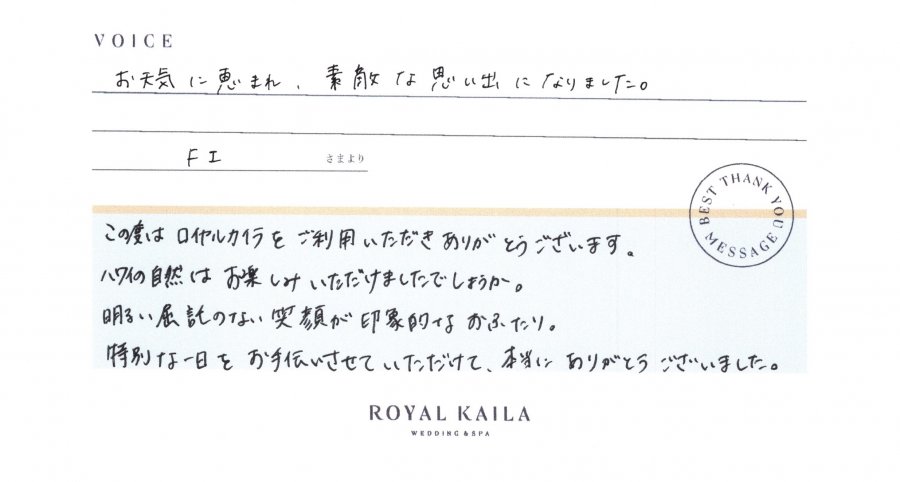 VOICE
お天気に恵まれ、素敵な思い出になりました。
F I
さまより
BEST THANK YOU MESSAGE
この度はロイヤルカイラをご利用いただきありがとうございます。
ハワイの自然はお楽しみいただけましたでしょうか。
明るい屈託のない笑顔が印象的なおふたり。
特別な一日をお手伝いさせていただけて、本当にありがとうございました。
ROYAL KAILA
WEDDING & SPA